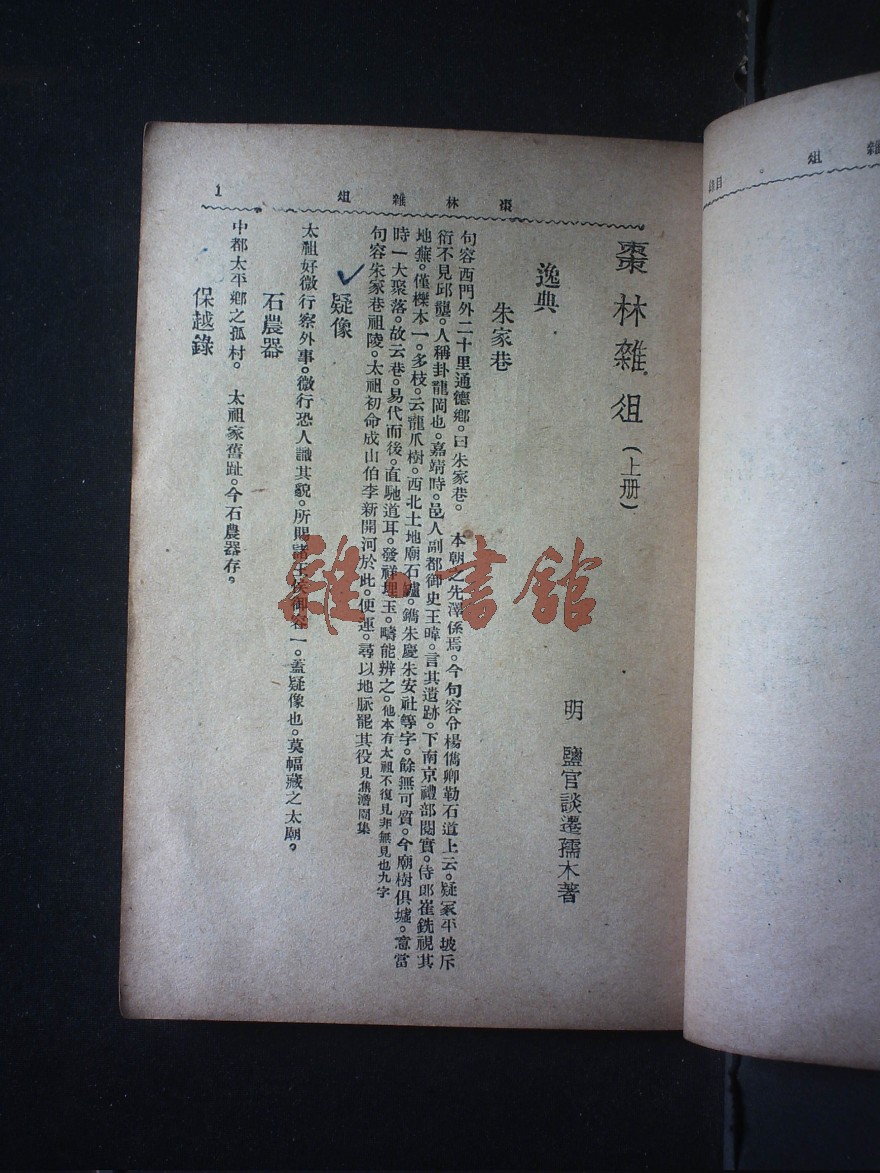 俎 雜 林 棗
1
棗林雜俎（上册）
明 鹽官談遷孺木著
逸典
朱家巷
句容西門外二十里通德鄉。曰朱家巷。 本朝之先澤係焉。今句容令楊僞卿勒石道上云。疑冢平坡斥
衍不見邱壟。人稱卦龍岡也。嘉靖時。邑人副都御史王暐。言其遺跡。下南京禮部閱實。侍郎崔銑視其
地蕪。僅櫟木一。多枝。云龍爪樹。西北土地廟石鑪。鐫朱慶朱安社等字。餘無可質。今廟樹俱墟。意當
時一大聚落。故云巷。易代而後。直馳道耳。發祥埋玉。疇能辨之。他本有太祖不復見非無見也九字
句容朱家巷祖陵。太祖初命成山伯李新開河於此。便運。尋以地脈罷其役見焦澹園集
疑像
太祖好微行察外事。微行恐人識其貌。所賜諸王侯御容一。蓋疑像也。莫幅藏之太廟。
石農器
中都太平鄉之孤村。 太祖家舊趾。今石農器存。
保越錄
俎 雜
目錄
雜·書館